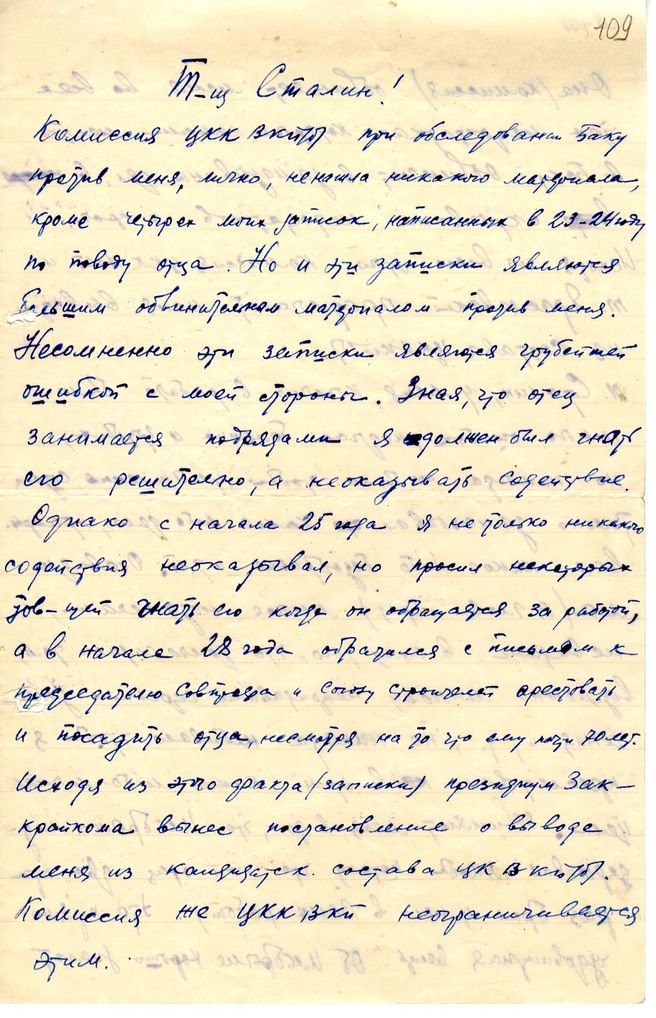 109
Т-щ Сталин!
Комиссия ЦКК ВКП(б) при обследовании Баку
против меня, лично, ненашла никакого матдриала,
кроме четырех моих записок, написанных в 23-24 году
по поводу отца. Но и эти записки являются
большим обвинителным матдриалом против меня.
Несомненно эти записки являются грубейшей
ошибкой с моей стороны. Зная, что отец
занимается подрядами я должен был гнать
его решително, а неоказывать содействие.
Однако с начала 25 года я не только никакого
содействия неоказывал, но просил некоторых
тов-щей гнать его когда он обращается за работой,
а в начале 28 года обратился с письмом к
председателю Совпрофа и Союзу строителей арестовать
и посадить отца, несмотря на то что ему почти 70 лет.
Исходя из этого факта (записки) президиум Зак-
крайкома вынес постановление о выводе
меня из кандидатск. состава ЦК ВКП(б).
Комиссия же ЦКК ВКП неограничивается
этим.